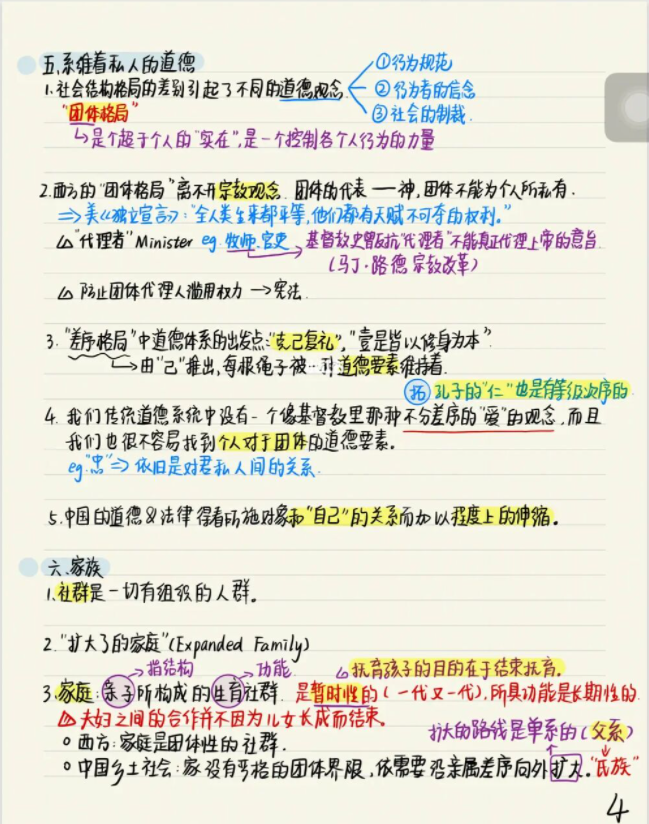 五.系维着私人的道德
1.社会结构格局的差别引起了不同的道德观念
①行为规范
②行为者的信念
③社会的制裁.
"团体格局"
↳是个超于个人的"实在",是一个控制各个人行为的力量
2.西方的"团体格局"离不开宗教观念.团体的代表——神,团体不能为个人所私有.
⇒美《独立宣言》:"全人类生来都平等,他们都有天赋不可夺的权利."
△"代理者"Minister eg.牧师.官吏→基督教史曾反抗"代理者"不能真正代理上帝的意旨
(马丁·路德宗教改革)
△防止团体代理人滥用权力→宪法.
3."差序格局"中道德体系的出发点:"克己复礼","壹是皆以修身为本".
↳由"己"推出,每根绳子被一种道德要素维持着.
拓 孔子的"仁"也是有等级次序的.
4.我们传统道德系统中没有一个像基督教里那种不分差序的"爱"的观念,而且
我们也很不容易找到个人对于团体的道德要素.
eg."忠"⇒依旧是对君私人间的关系.
5.中国的道德&法律得看所施对象和"自己"的关系而加以程度上的伸缩。
六.家族
1.社群是一切有组织的人群。
2."扩大了的家庭"(Expanded Family)
指结构 功能 抚育孩子的目的在于结束抚育.
3.家庭:亲子所构成的生育社群.是暂时性的(一代又一代),所具功能是长期性的.
△夫妇之间的合作并不因为儿女长成而结束.
扩大的路线是单系的(父系)
○西方:家庭是团体性的社群.
○中国乡土社会:家没有严格的团体界限,依需要沿亲属差序向外扩大."氏族"
4